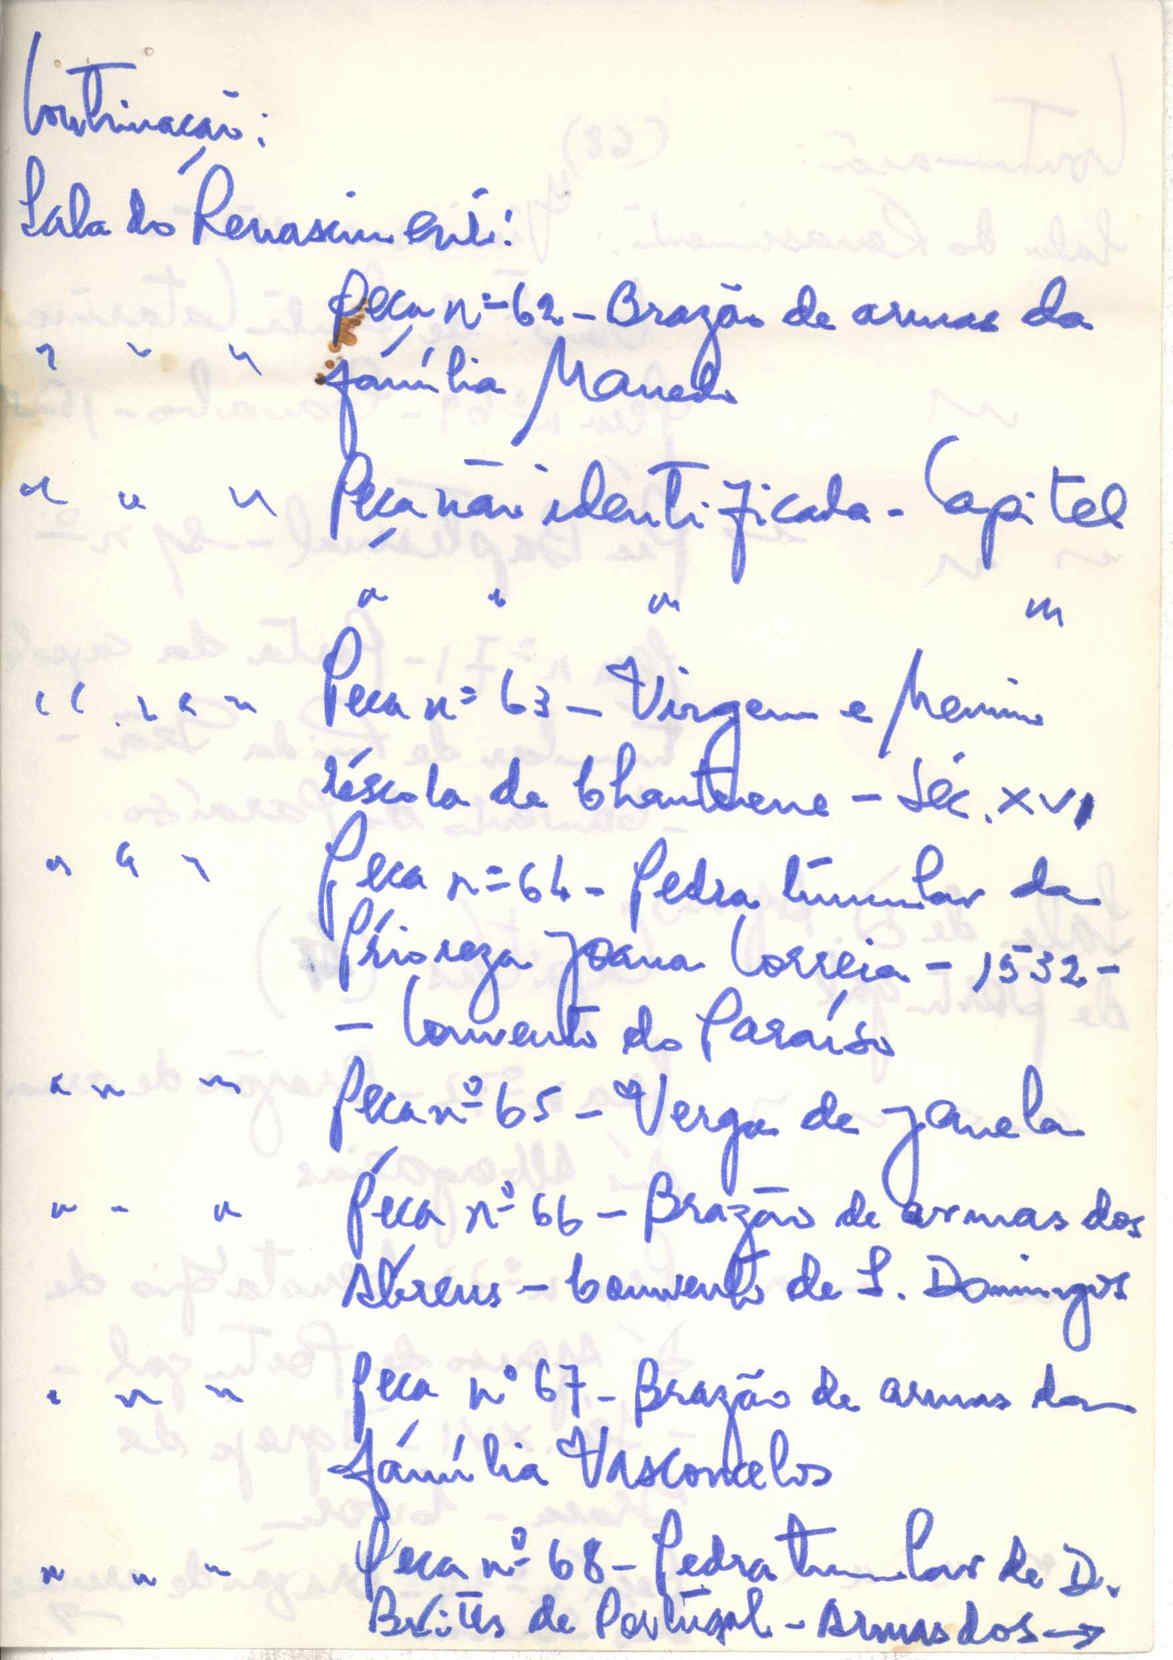 Continuação:
Sala do Renascimento:
Peça nº 62 - Brazão de armas da
" " " família Macedo
" " " Peça não identificada - Capitel
" " " "
" " " " " Peça nº 63 - Virgem e Menino
Escola de Chanterene - Séc. XVI
" " " Peça nº 64 - Pedra tumular da
Prioreza Joana Correia - 1532 -
- Convento do Paraíso
" " " Peça nº 65 - Verga de janela
" " " Peça nº 66 - Brazão de armas dos
Abreus - Convento de S. Domingos
" " " Peça nº 67 - Brazão de armas da
família Vasconcelos
" " " Peça nº 68 - Pedra tumular de D.
Brites de Portugal - Armas dos →